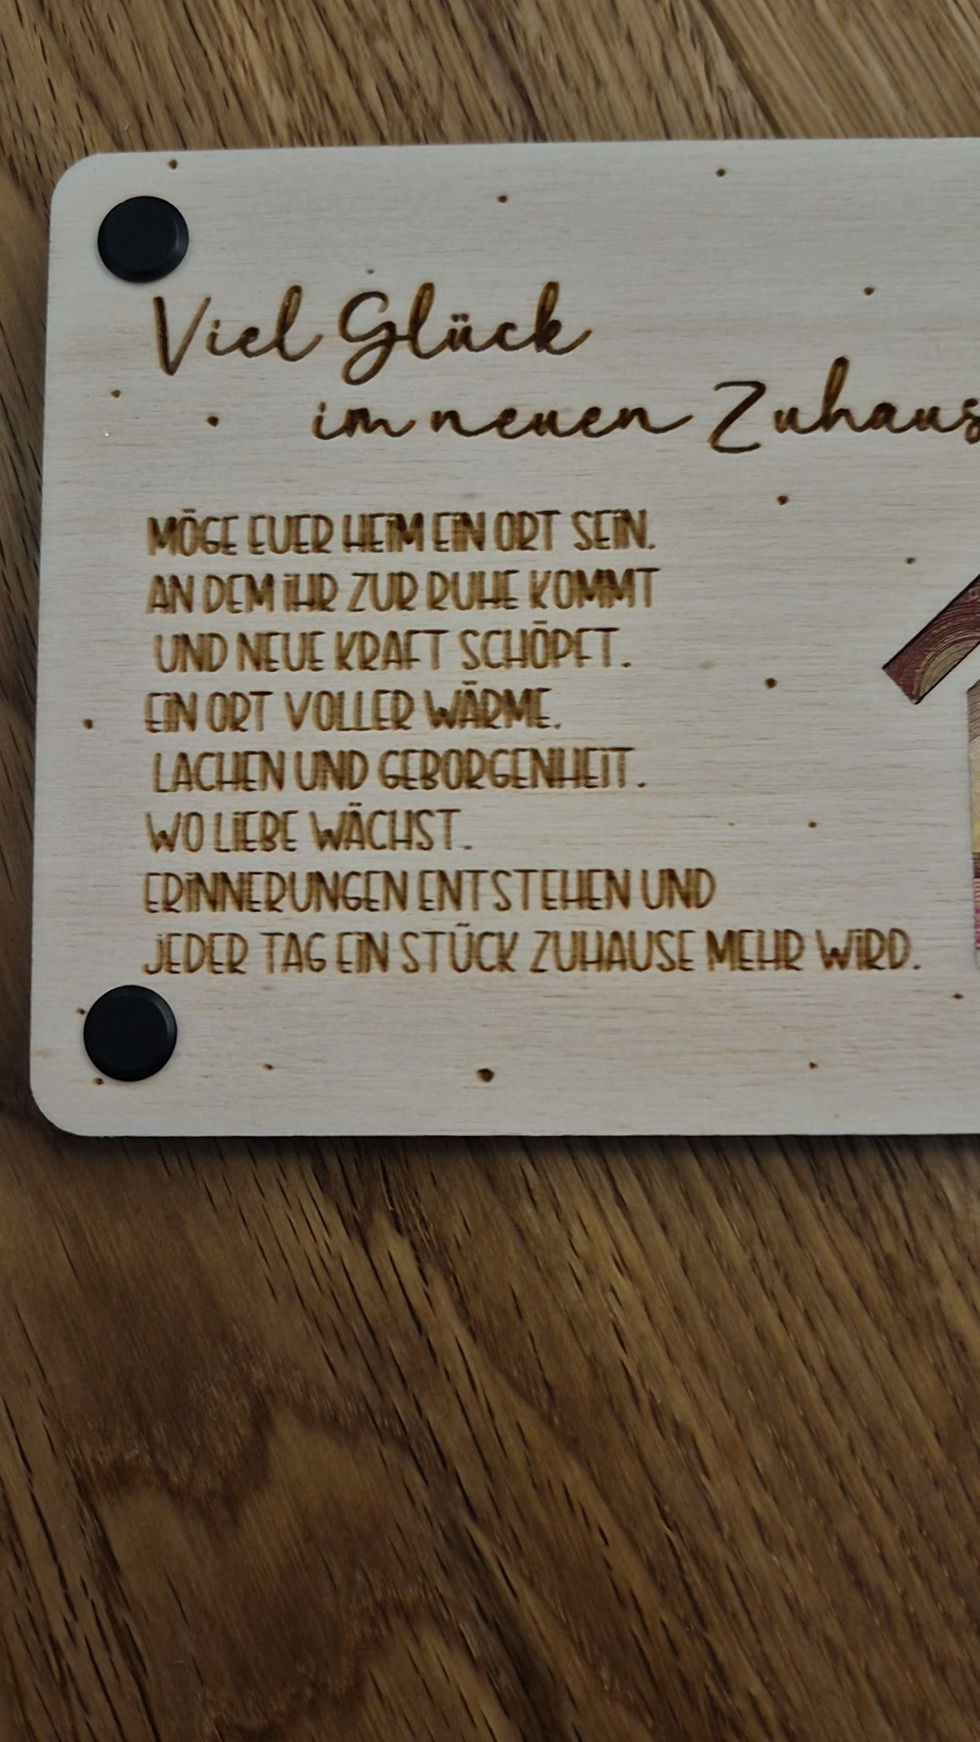 Viel Glück
im neuen Zuhaus
MÖGE EUER HEIM EIN ORT SEIN.
AN DEM IHR ZUR RUHE KOMMT
UND NEUE KRAFT SCHÖPFT.
EIN ORT VOLLER WÄRME.
LACHEN UND GEBORGENHEIT.
WO LIEBE WÄCHST.
ERINNERUNGEN ENTSTEHEN UND
JEDER TAG EIN STÜCK ZUHAUSE MEHR WIRD.